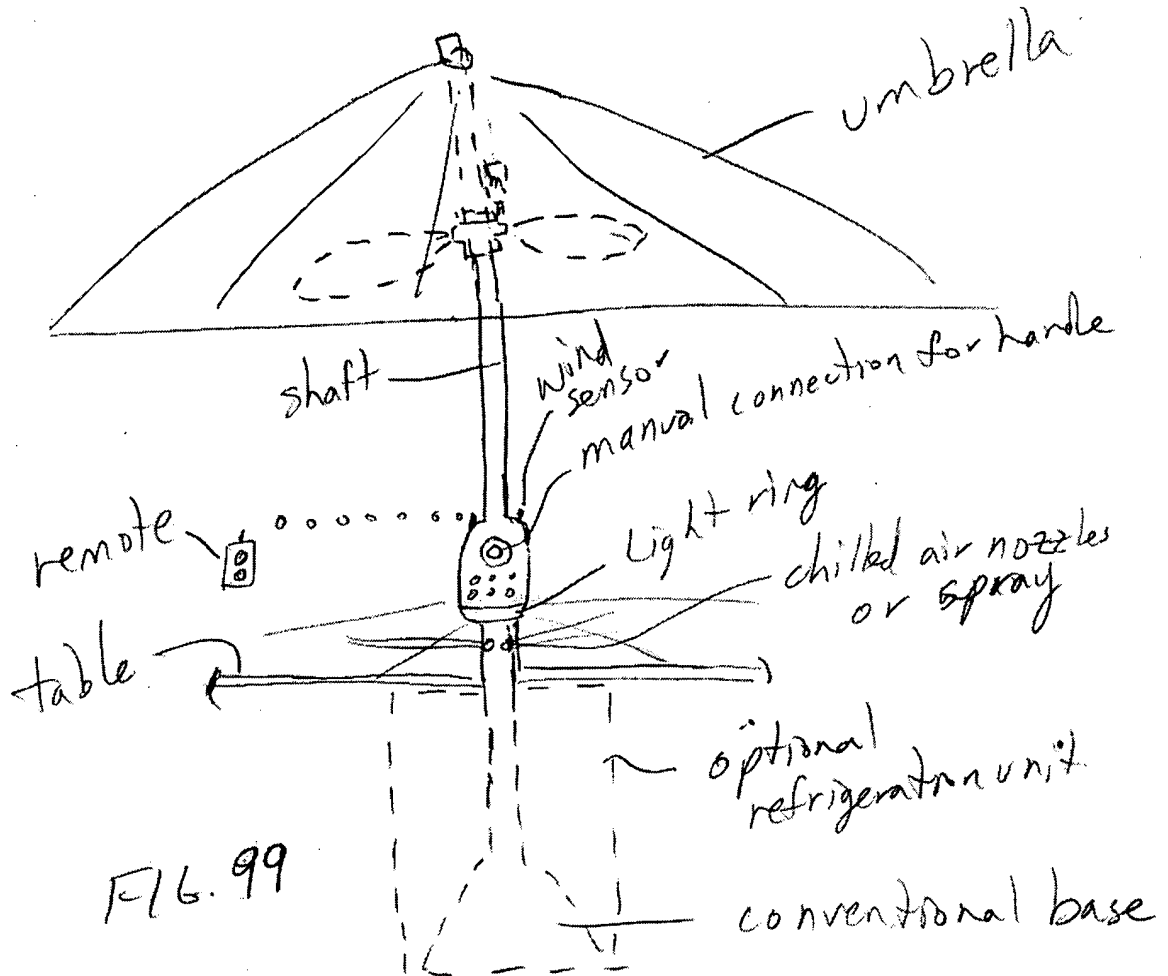 umbrella
shaft
wind
sensor
manual connection for handle
remote
Light ring
chilled air nozzles
or spray
table
optional
refrigeration unit
FIG. 99
conventional base